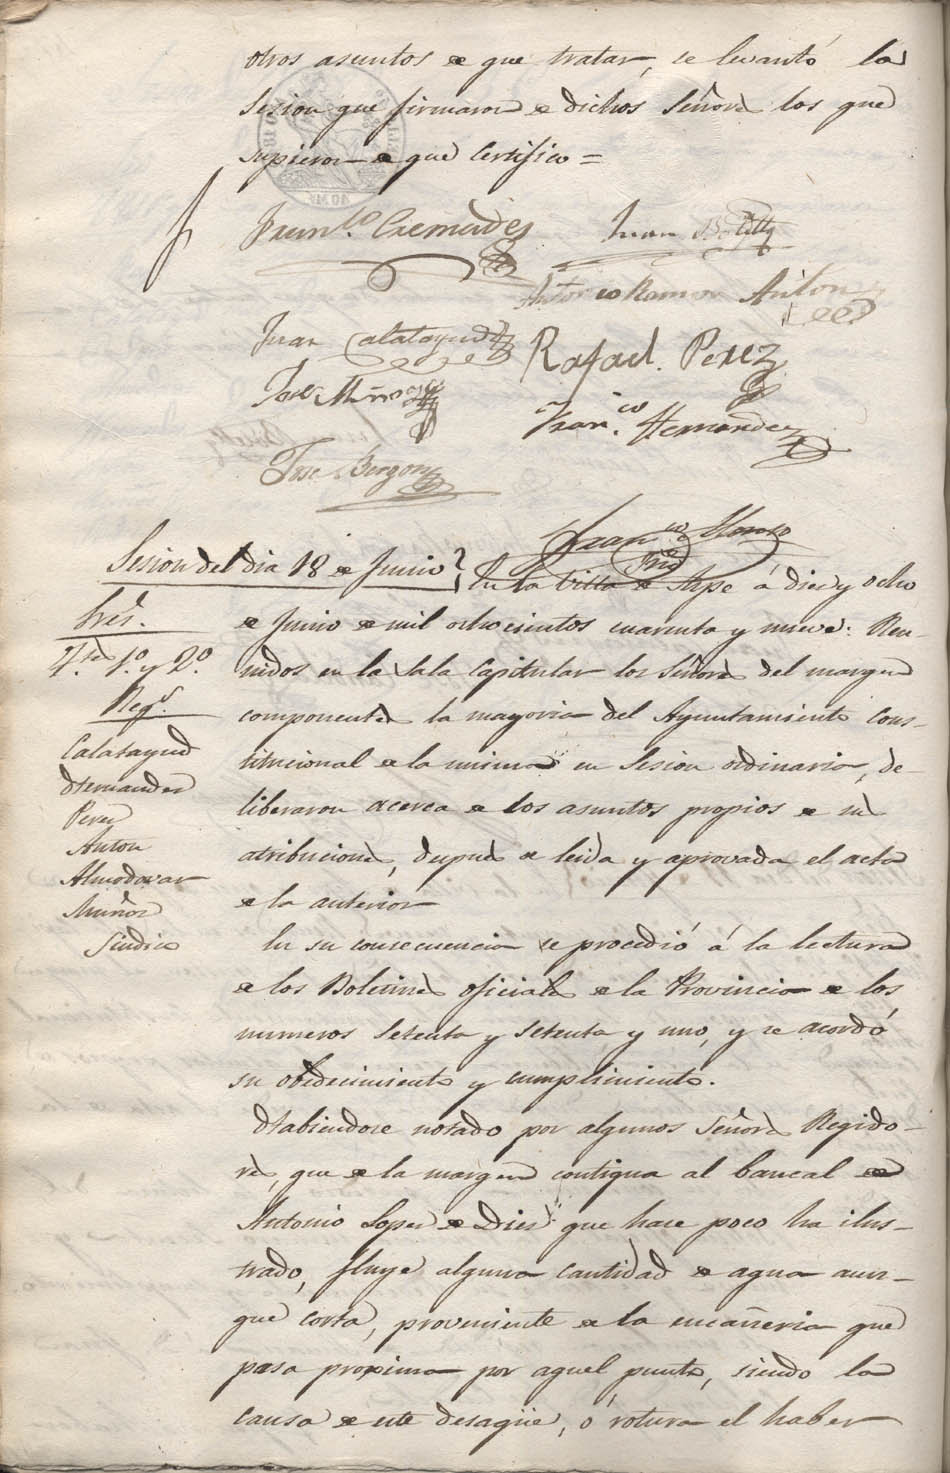 otros asuntos de que tratar, se levantó la
Sesion que firmaron de dichos Señores los que
supieron de que Certifico =
Fran.co Cremades
Juan Botella
Antonio Ramon Anton
Juan Calatayud
Rafael. Perez
Jose Muños
Fran.co Hernandez
Jose Burgon
Fran.co Alonso
Srio
Sesion del dia 18 de Junio
En la Villa de Aspe á diez y ocho
Sres.
de Junio de mil ochocientos cuarenta y nueve: Reu-
Ttes. 1.o y 2.o
nidos en la Sala Capitular los Señores del margen
Regs.
componentes la mayoria del Ayuntamiento Cons-
Calatayud
titucional de la misma en Sesion ordinaria, de-
Hernandez
liberaron acerca de los asuntos propios de sus
Perez
Anton
atribuciones, despues de leida y aprovada el acta
Almodovar
de la anterior
Muñoz
Sindico
En su consecuencia se procedió á la lectura
de los Boletines oficiales de la Provincia de los
numeros setenta y setenta y uno, y se acordó
su obedecimiento y cumplimiento.
Habiendose notado por algunos Señores Regido-
res, que de la margen contigua al bancal de
Antonio Lopez de Diez que hace poco ha ilus-
trado, fluye alguna cantidad de agua aun-
que corta, proveniente de la encañeria que
pasa proxima por aquel punto, siendo la
causa de este desagüe, ó rotura el haber